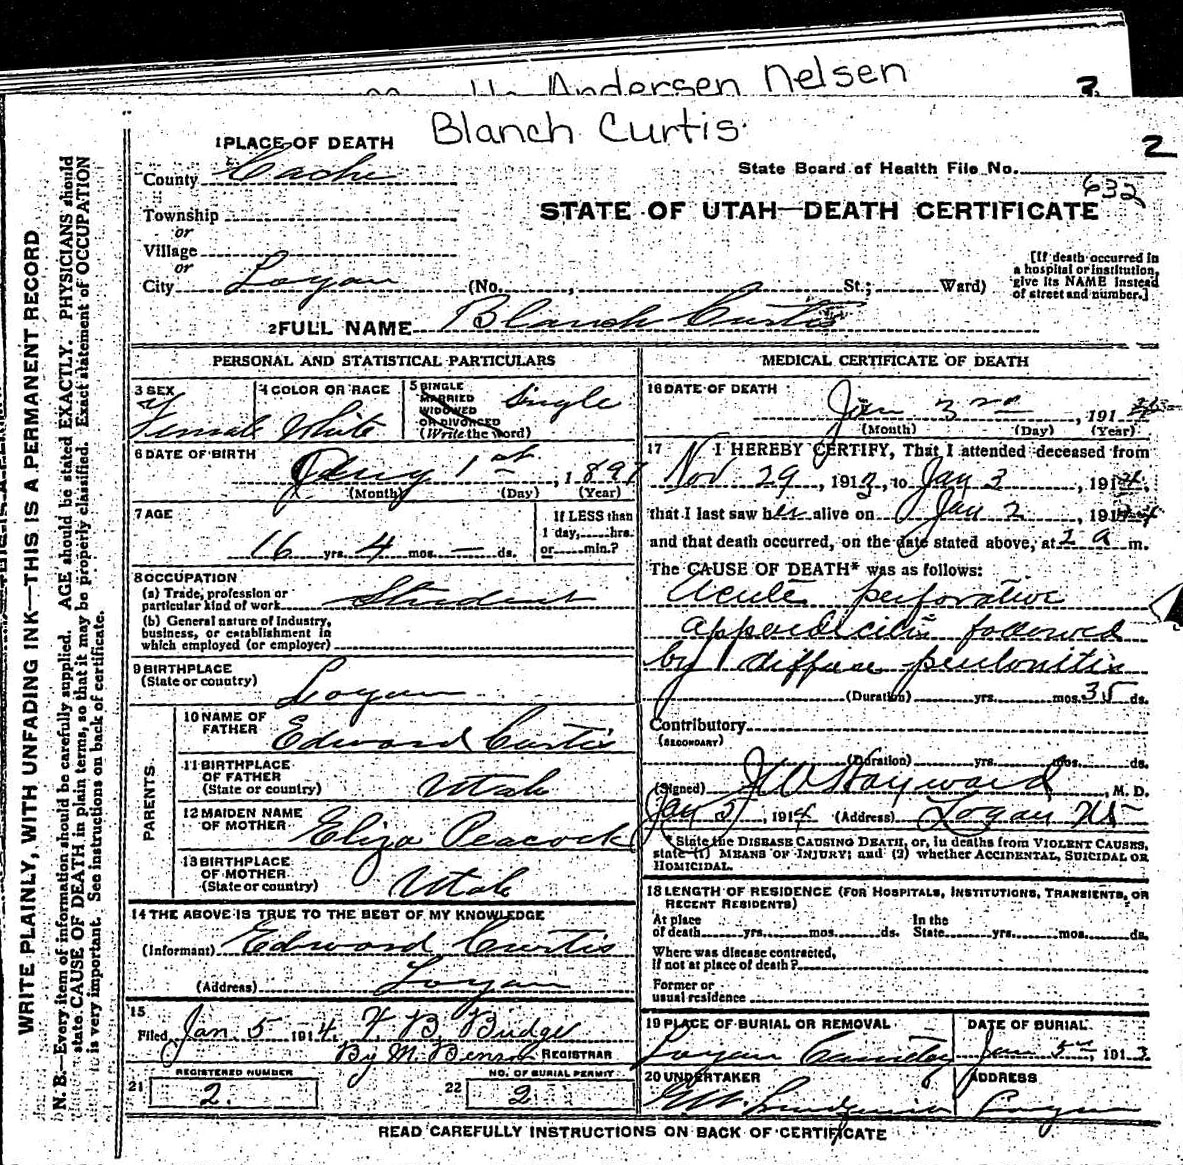 Andersen Nelsen
2
Blanch Curtis.
2
1 PLACE OF DEATH
County Cache
State Board of Health File No.
632
Township
STATE OF UTAH—DEATH CERTIFICATE
or
Village
or
City Logan (No. , St.; Ward)
[If death occurred in
a hospital or institution,
give its NAME instead
of street and number.]
2 FULL NAME Blanch Curtis
PERSONAL AND STATISTICAL PARTICULARS
3 SEX
Female
4 COLOR OR RACE
White
5 SINGLE
MARRIED
WIDOWED
OR DIVORCED
(Write the word)
Single
6 DATE OF BIRTH
1st , 1897
(Month) (Day) (Year)
7 AGE
16 yrs. 4 mos. — ds.
If LESS than
1 day, hrs.
or min.?
8 OCCUPATION
(a) Trade, profession or
particular kind of work Student
(b) General nature of Industry,
business, or establishment in
which employed (or employer)
9 BIRTHPLACE
(State or country)
Logan
PARENTS
10 NAME OF
FATHER
Edward Curtis
11 BIRTHPLACE
OF FATHER
(State or country)
Utah
12 MAIDEN NAME
OF MOTHER
Eliza Peacock
13 BIRTHPLACE
OF MOTHER
(State or country)
Utah
14 THE ABOVE IS TRUE TO THE BEST OF MY KNOWLEDGE
(Informant) Edward Curtis
(Address) Logan
15
Filed Jan 5 1914. F B Budge
By M. Benson REGISTRAR
REGISTERED NUMBER
21 2.
NO. OF BURIAL PERMIT
22 2.
MEDICAL CERTIFICATE OF DEATH
16 DATE OF DEATH
Jan 3rd , 191
(Month) (Day) (Year)
17 I HEREBY CERTIFY, That I attended deceased from
Nov 29, 191 , to Jan 3, 1914.
that I last saw her alive on Jan 2, 1914
and that death occurred, on the date stated above, at 2 a m.
The CAUSE OF DEATH* was as follows:
Acute perforative
appendicitis followed
by diffuse peritonitis
(Duration) yrs. mos. 35 ds.
Contributory
(SECONDARY)
(Duration) yrs. mos. ds.
(Signed) Hayward, M. D.
Jan , 1914 (Address) Logan Ut
*State the DISEASE CAUSING DEATH, or, in deaths from VIOLENT CAUSES,
state (1) MEANS OF INJURY; and (2) whether ACCIDENTAL, SUICIDAL OR
HOMICIDAL.
18 LENGTH OF RESIDENCE (FOR HOSPITALS, INSTITUTIONS, TRANSIENTS, OR
RECENT RESIDENTS)
At place
of death yrs. mos. ds.
In the
State yrs. mos. ds.
Where was disease contracted,
if not at place of death?
Former or
usual residence
19 PLACE OF BURIAL OR REMOVAL
Logan Cemetery
DATE OF BURIAL
Jan 5th 1913
20 UNDERTAKER
ADDRESS
Logan
READ CAREFULLY INSTRUCTIONS ON BACK OF CERTIFICATE
WRITE PLAINLY, WITH UNFADING INK—THIS IS A PERMANENT RECORD
N. B.—Every item of information should be carefully supplied. AGE should be stated EXACTLY. PHYSICIANS should
state CAUSE OF DEATH in plain terms, so that it may be properly classified. Exact statement of OCCUPATION
is very important. See instructions on back of certificate.